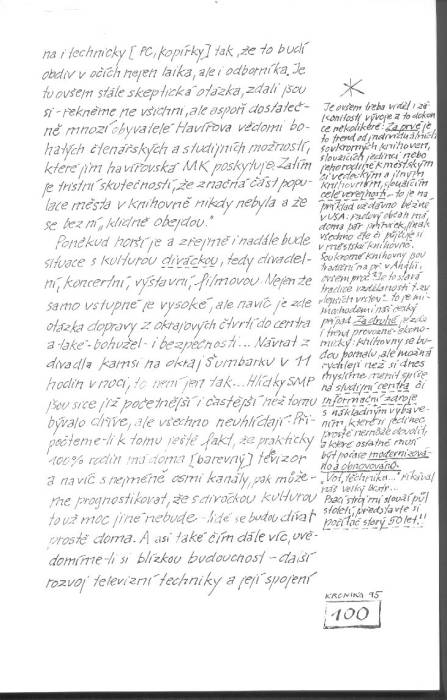 na i technicky [PC, kopírky] tak, že to budí
obdiv v očích nejen laika, ale i odborníka. Je
tu ovšem stále skeptická otázka, zdali jsou
si - řekněme ne všichni, ale aspoň dostateč-
ně mnozí obyvatelé Havířova vědomi bo-
hatých čtenářských a studijních možností,
které jim havířovská MK poskytuje. Zatím
je tristní skutečností, že značná část popu-
lace města v knihovně nikdy nebyla a že
se bez ní „klidně obejdou."
Poněkud horší je a zřejmě i nadále bude
situace s kulturou diváckou, tedy divadel-
ní, koncertní, výstavní, filmovou. Nejen že
samo vstupné je vysoké, ale navíc je zde
otázka dopravy z okrajových čtvrtí do centra
a také - bohužel - i bezpečnosti... Návrat z
divadla kamsi na okraj Šumbarku v 11
hodin v noci, to není jen tak... Hlídky SMP
jsou sice již početnější i častější než tomu
bývalo dříve, ale všechno neuhlídají. Při-
počteme-li k tomu ještě fakt, že prakticky
100% rodin má doma [barevný] televizor
a navíc s nejméně osmi kanály, pak může-
me prognostikovat, že s diváckou kulturou
to už moc jiné nebude - lidé se budou dívat
prostě doma. A asi také čím dále víc, uvě-
domíme-li si blízkou budoucnost - další
rozvoj televizní techniky a její spojení
*
Je ovšem třeba vidět i zá-
konitosti vývoje a to dokon-
ce několikeré: Za prvé je
to trend od individuálních,
soukromých knihoven,
sloužících jedinci nebo
jeho rodině k městským
či vědeckým a jiným
knihovnám, sloužícím
celé veřejnosti - to je na
příklad už dávno běžné
v USA.
doma pár příruček, jinak
všechno čte či půjčuje si
v městské knihovně.
Soukromé knihovny jsou
tradiční na př. v Anglii,
ovšem proč? Je to stará
tradice vzdělanosti t.zv.
vyšších vrstev. To je mi-
mochodem i náš český
případ. Za druhé je zde
i trend provozně-ekono-
mický: knihovny se bu-
dou pomalu, ale možná
rychleji než si dnes
myslíme, měnit spíše
na studijní centra či
informační zdroje
s nákladným vybave-
ním, které si jedinec
prostě nemůže dovolit,
a které ostatně musí
být pořád modernizová-
no a obnovováno.
„Vot, těchnika..." říkával
náš velký bratr...
Psací stroj mi slouží půl
století, představte si
počítač starý 50 let!!
KRONIKA 95
100